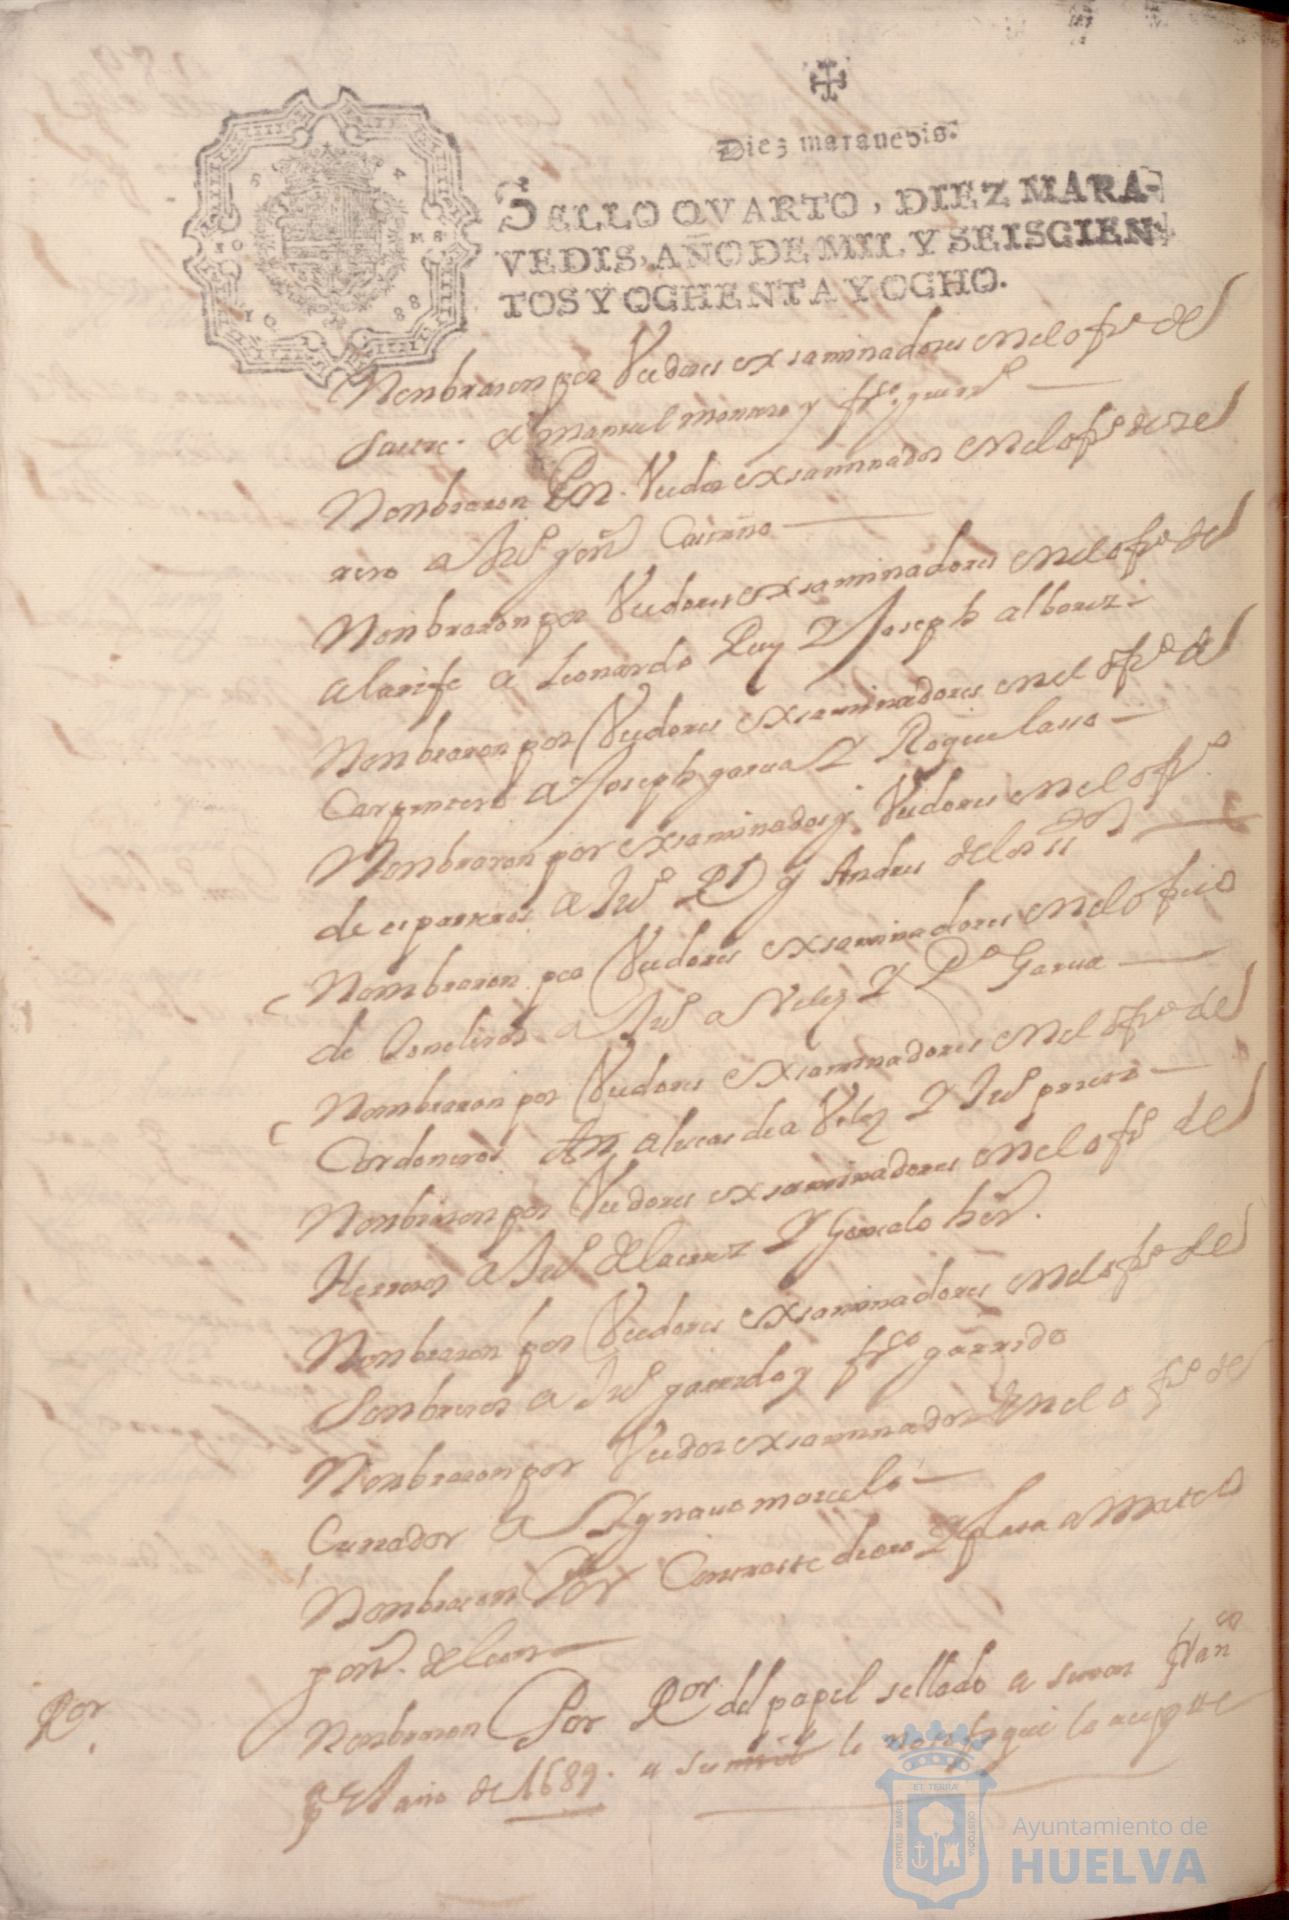 Diez marauedis.
SELLO QVARTO, DIEZ MARA-
VEDIS, AÑO DE MIL Y SEISCIEN-
TOS Y OCHENTA Y OCHO.
Nonbraron por Veedores exsaminadores en el ofiº del
sastre a Manuel montero y frco.
Nonbraron Por Veedor exsaminador en el ofiº de
rero a Juº gonz Castaño
Nonbraron por Veedores exsaminadores en el ofiº del
alarife a Leonardo Ruy Y Joseph albarez
Nonbraron por Veedores exsaminadores en el ofiº del
Carpintero a Joseph garcia Y Roque lasso
Nonbraron por exsaminadores y Veedores en el ofiº
de esparteros a Juº Rº y Andres de los
Nombraron por Veedores exsaminadores en el oficio
de toneleros a Juº a Velez Y Pº Garcia
Nombraron por Veedores exsaminadores en el ofiº del
Cordoneros a lucas de a Velez Y Juº prieto
Nonbraron por Veedores exsaminadores en el ofiº del
Herreros a Juº de la cruz Y Gonçalo
Nonbraron por Veedores exsaminadores en el ofiº del
Sonbreros a Juº y frco garrido
Nonbraron por Veedor exsaminador en el ofiº del
Curtador a Ygnacio marcelo
Nonbraron Por Contraste de oro Y plata a Mateo
gonz. de leon
Ror
Nonbraron Por Ror del papel sellado a simon
el año de 1689. a
PORTUS MARIS
ET TERRÆ
CUSTODIA
Ayuntamiento de
HUELVA